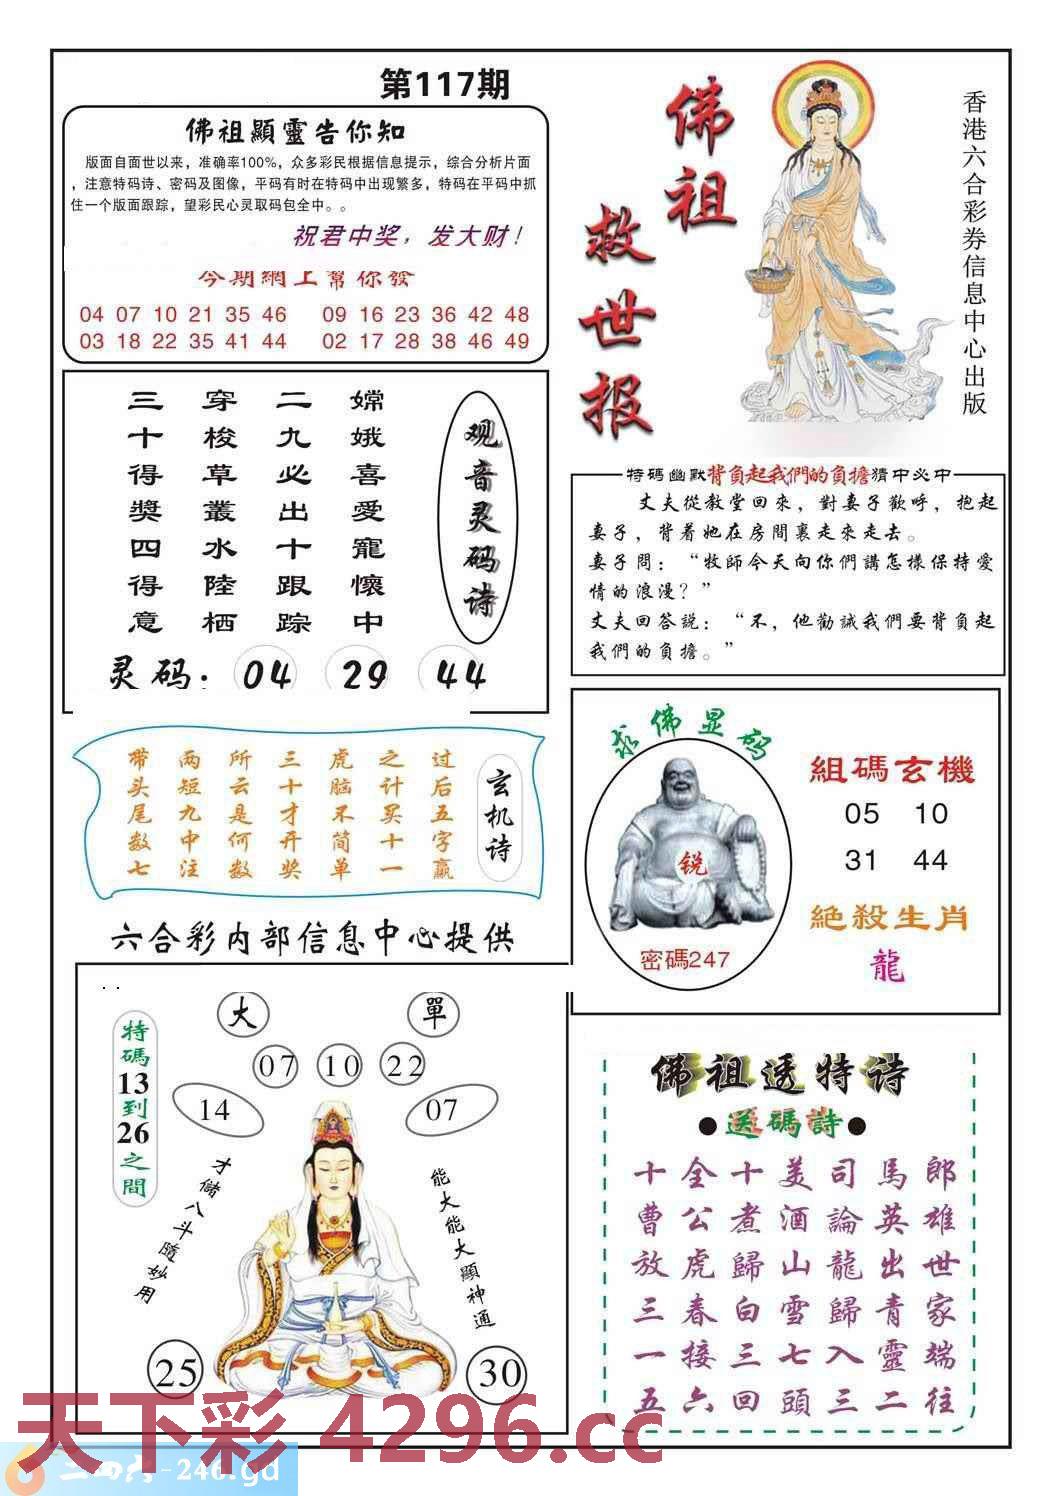 第117期
佛祖顯靈告你知
版面自面世以来，准确率100%，众多彩民根据信息提示，综合分析片面
，注意特码诗、密码及图像，平码有时在特码中出现繁多，特码在平码中抓
住一个版面跟踪，望彩民心灵取码包全中。。
祝君中奖，发大财！
今期網上幫你發
04 07 10 21 35 46 09 16 23 36 42 48
03 18 22 35 41 44 02 17 28 38 46 49
佛祖
救世报
香港六合彩券信息中心出版
嫦娥喜愛寵懷中
二九必出十跟踪
穿梭草叢水陸栖
三十得獎四得意
观音灵码诗
灵码：04 29 44
特碼幽默背負起我們的負擔猜中必中
丈夫從教堂回來，對妻子歡呼，抱起
妻子，背着她在房間裏走來走去。
妻子問：“牧師今天向你們講怎樣保持愛
情的浪漫？”
丈夫回答説：“不，他勸誡我們要背負起
我們的負擔。”
玄机诗
过后五字赢
之计买十一
虎脑不简单
三十才开奖
所云是何数
两短九中注
带头尾数七
求佛显码
锐
密碼247
組碼玄機
05 10
31 44
絕殺生肖
龍
六合彩内部信息中心提供
大 單
07 10 22
14 07
特碼13到26之間
才儲八斗隨妙用
能大能大顯神通
25 30
佛祖透特诗
●送碼詩●
十全十美司馬郎
曹公煮酒論英雄
放虎歸山龍出世
三春白雪歸青家
一接三七入靈端
五六回頭三二往
天下彩 4296.cc
二四六-246.gd